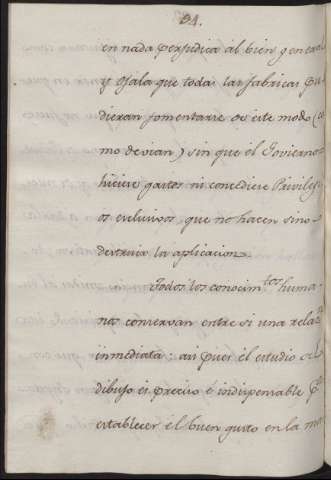 94.
en nada perjudica al bien general
y Ojala que todas las fabricas pu-
dieran fomentarse de este modo (co
mo devian) sin que el Govierno
hiciese gastos ni concediese Privilegi
os exclusivos, que no hacen sino
destruir la aplicacion.
Todos los conocim.tos huma-
nos conservan entre si una relaz.n
inmediata: asi pues el estudio del
dibujo es preciso é indispensable p.a
establecer el buen gusto en la ma